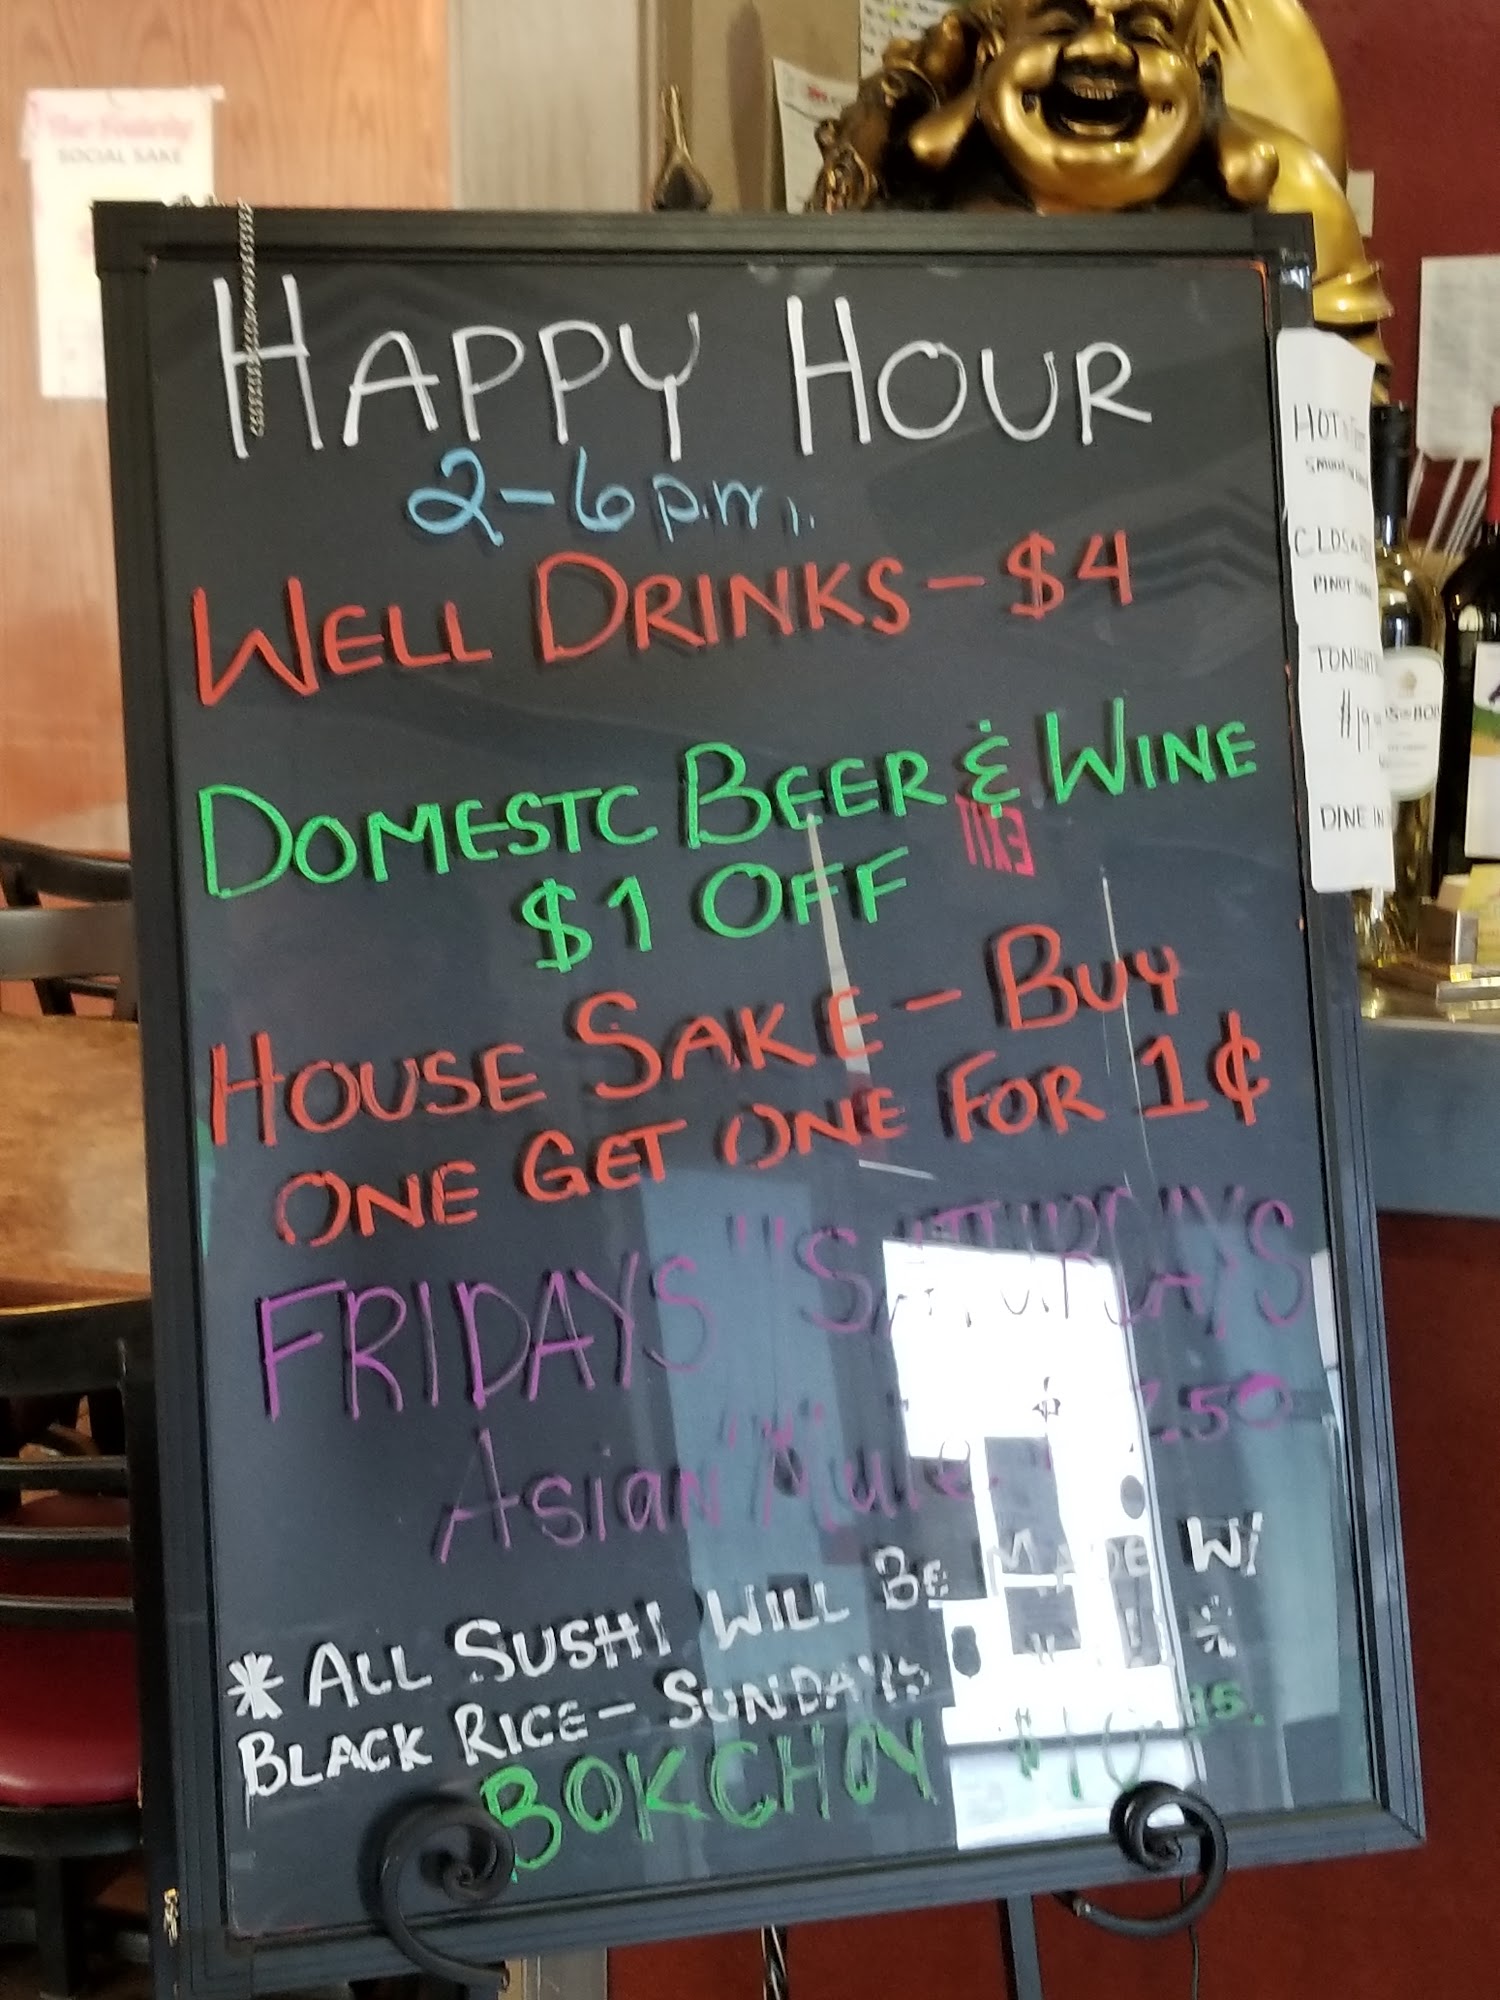 SOCIAL SAKE
HAPPY HOUR
2-6 p.m.
WELL DRINKS - $4
DOMESTC BEER & WINE
$1 OFF
HOUSE SAKE - BUY
ONE GET ONE FOR 1¢
FRIDAYS "SATURDAYS
Asian "Mule"
* ALL SUSHI WILL BE MADE W/
BLACK RICE - SUNDAYS
BOKCHOY
HOT
PINOT
TONIGHT
DINE IN